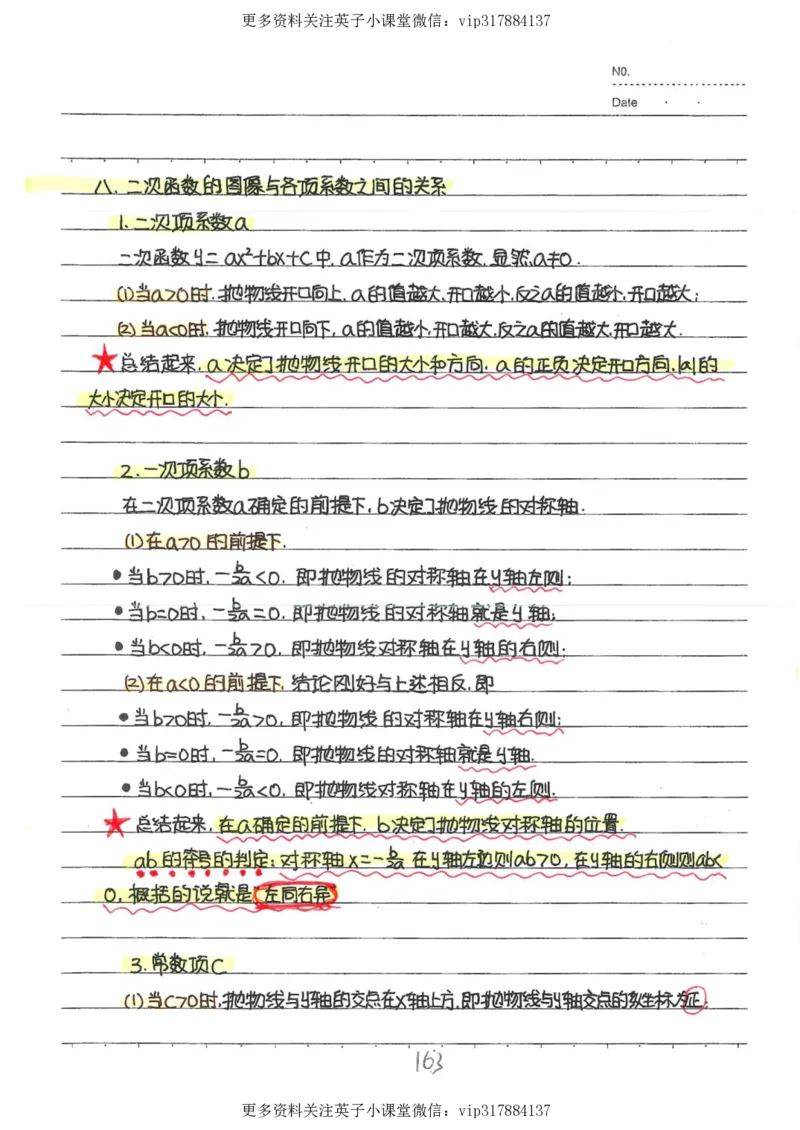 更多资料关注英子小课堂微信：vip317884137
NO.
Date · ·
八、二次函数的图像与各项系数之间的关系
1.二次项系数a
二次函数y=ax²+bx+c中，a作为二次项系数，显然a≠0.
(1)当a>0时，抛物线开口向上，a的值越大，开口越小，反之a的值越小，开口越大；
(2)当a<0时，抛物线开口向下，a的值越小，开口越大，反之a的值越大，开口越大.
★总结起来，a决定了抛物线开口的大小和方向，a的正负决定开口方向，|a|的
大小决定开口的大小.
2.一次项系数b
在二次项系数a确定的前提下，b决定了抛物线的对称轴.
(1)在a>0的前提下.
•当b>0时，-b/2a<0，即抛物线的对称轴在y轴左侧；
•当b=0时，-b/2a=0，即抛物线的对称轴就是y轴；
•当b<0时，-b/2a>0，即抛物线对称轴在y轴的右侧；
(2)在a<0的前提下，结论刚好与上述相反，即
•当b>0时，-b/2a>0，即抛物线的对称轴在y轴右侧；
•当b=0时，-b/2a=0，即抛物线的对称轴就是y轴.
•当b<0时，-b/2a<0，即抛物线对称轴在y轴的左侧.
★总结起来，在a确定的前提下，b决定了抛物线对称轴的位置.
ab的符号的判定：对称轴x=-b/2a在y轴左边则ab>0，在y轴的右侧则ab<
0，概括的说就是“左同右异”
3.常数项c
(1)当c>0时，抛物线与y轴的交点在x轴上方，即抛物线与y轴交点的纵坐标为正；
163
更多资料关注英子小课堂微信：vip317884137